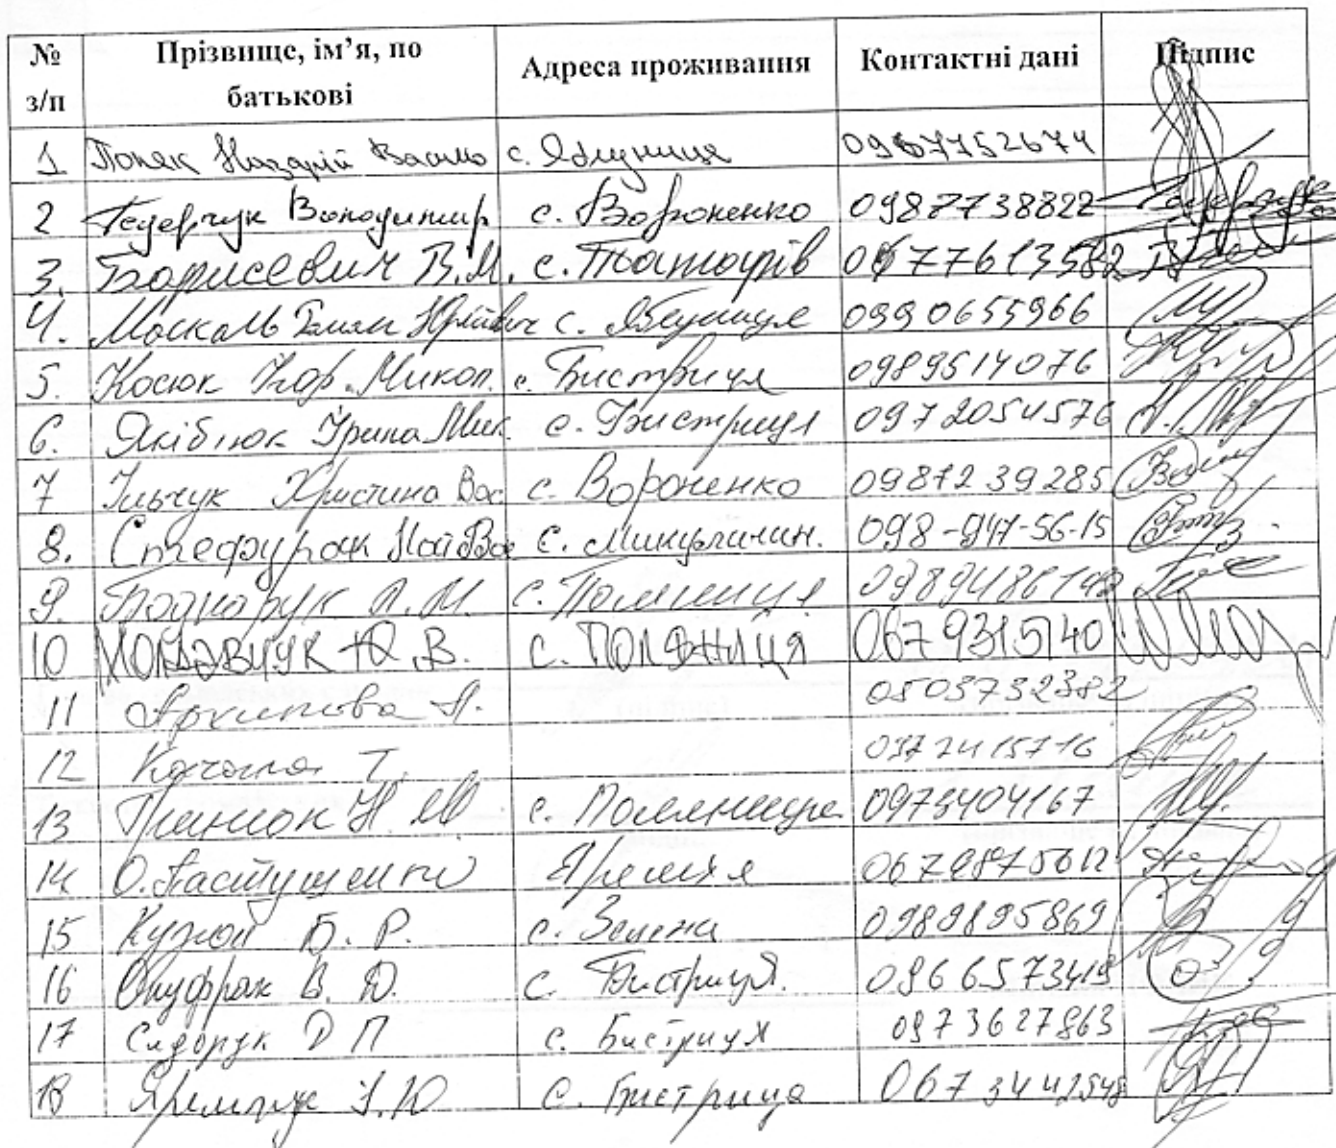 № з/п Прізвище, ім’я, по батькові Адреса проживання Контактні дані Підпис
1 Назарій с. Яблуниця 0967752674
2 Федерчук Володимир с. Вороненко 0987738822
3. Борисевич В.М. с. Татарів
4. Москаль Юрійович с. Яблуниця 0990655966
5. Косюк Ігор. Микол. с. Бистриця 0989514076
6. Якібюк Ірина Мик. с. Бистриця 0972054576
7 Ільчук Христина Вас с. Вороненко 0987239285
8. Стефурак с. Микуличин. 098-947-56-15
9. Боднарук Л. М. с. Поляниця
10 МОЛДАВЧУК Ю.В. с. ПОЛЯНИЦЯ 0679315140
11 Архипова Л. 0503732382
12 Т. 0972415716
13 Н М. с. Поляниця 0973404167
14 О. Пастущенко Яремче
15 Б. Р. с. Зелена 0989895869
16 Онуфрак В. Д. с. Бистриця.
17 Сидорук Д П с. Бистриця 0973627863
18 с. Бистриця